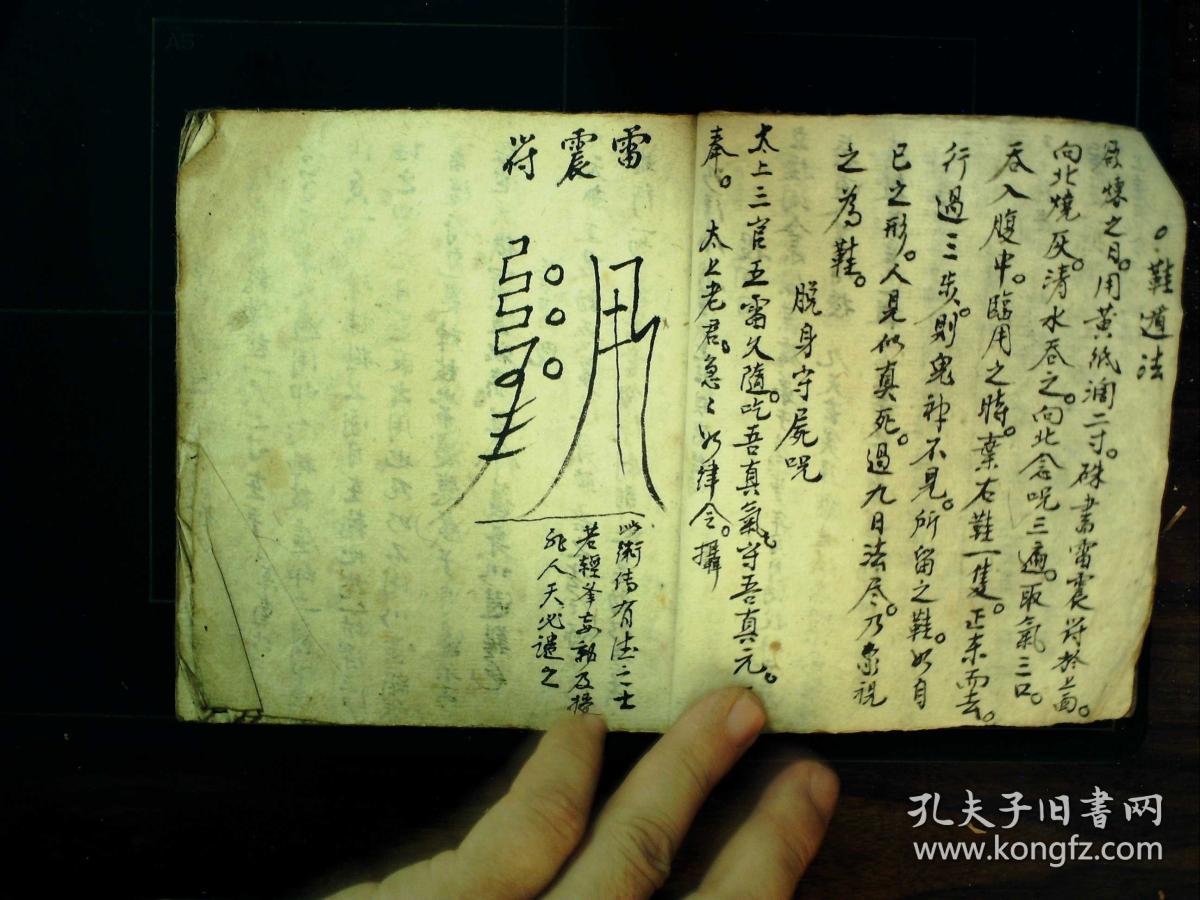 鞋遁法
煉之日。用黄紙濶二寸。硃書雷震符於上面。
向北燒灰。清水吞之。向北念呪三遍。取氣三口。
吞入腹中。臨用之時。棄右鞋一隻。正東而去。
行過三步。則鬼神不見。所留之鞋。如自
己之形。人見似真死。過九日法尽。乃衆視
之為鞋。
脱身守屍呪
太上三官五雷久隨。吃吾真氣。守吾真元。
奉。太上老君。急々如律令。攝
雷震符
此術傳有德之士
若輕筆妄訴及授
非人天必譴之
孔夫子旧書网
www.kongfz.com
A5